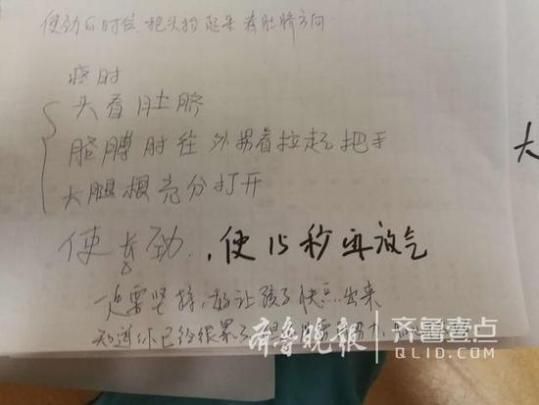 使劲的时候把头抬起来看肚脐方向
疼时
头看肚脐
胳膊肘往外拐着拉起把手
大腿根充分打开
大
使长劲,使15秒再放气
一定要坚持,好让孩子快点出来
知道你已经很累了
齐鲁晚报 齐鲁壹点
QLID.COM